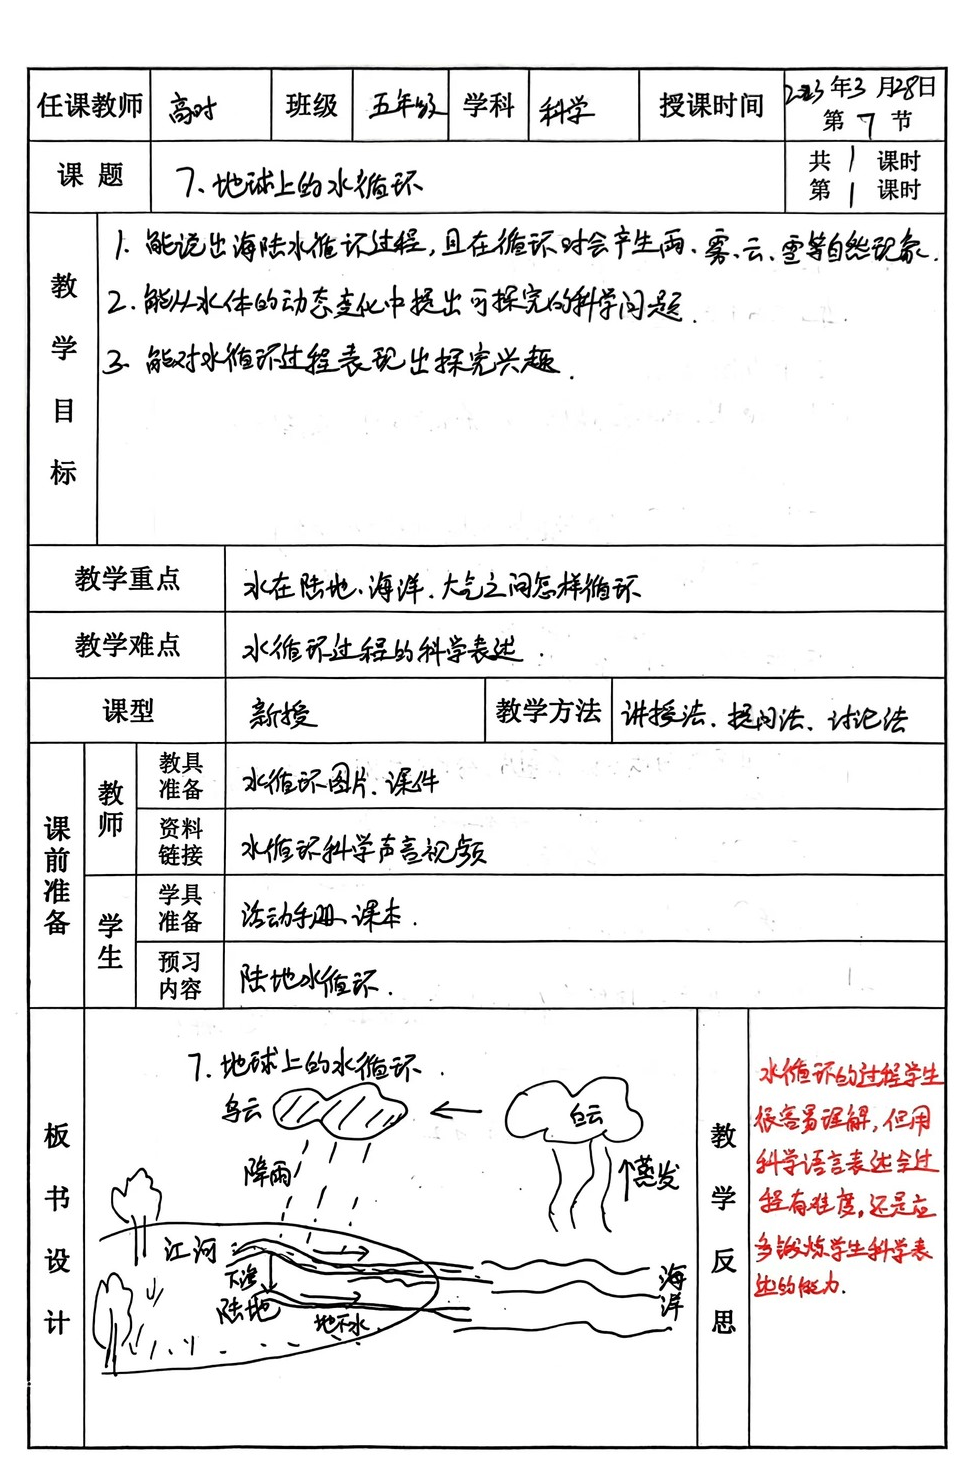 任课教师 高时 班级 五年级 学科 科学 授课时间 2023年3月28日
第7节
课题 7、地球上的水循环 共1课时
第1课时
教学目标
1. 能说出海陆水循环过程,且在循环时会产生雨、雾、云、雪等自然现象.
2. 能从水体的动态变化中提出可探究的科学问题.
3. 能对水循环过程表现出探究兴趣.
教学重点 水在陆地、海洋、大气之间怎样循环
教学难点 水循环过程的科学表述.
课型 新授 教学方法 讲授法、提问法、讨论法
课前准备
教师
教具准备 水循环图片、课件
资料链接 水循环科学声音视频
学生
学具准备 活动手册、课本.
预习内容 陆地水循环.
板书设计
7. 地球上的水循环.
乌云 白云
降雨 蒸发
江河
下渗
陆地 地下水
海洋
教学反思
水循环的过程学生
很容易理解,但用
科学语言表达全过
程有难度,还是应
多锻炼学生科学表
达的能力.